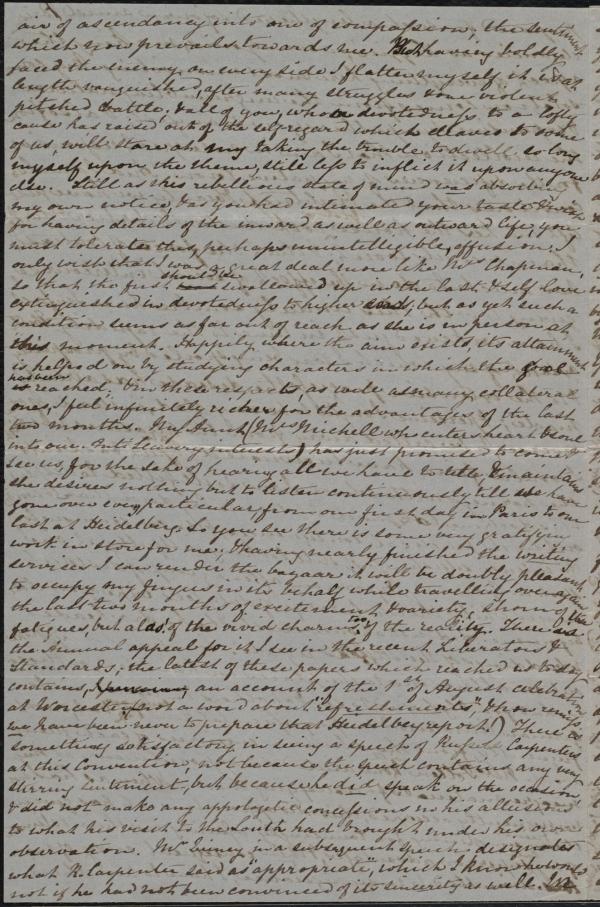 air of ascendancy into one of compassion, the sentiment
which now prevails towards me. But having boldly
faced the enemy on every side I flatter myself it is at
length vanquished, after many struggles & one violent
pitched battle, & all of you, whose devotedness to a lofty
cause has raised out of the self regard which slaves to some
of us, will stare at my taking the trouble to dwell so long
myself upon the theme, still less to inflict it upon anyone
else. Still as this rebellious state of mind was absorbing
my own notice, & as you had intimated your taste & wish
for having details of the inward as well as outward life, you
must tolerate this, perhaps unintelligible, effusion. I
only wish that I was a great deal more like Mrs Chapman,
so that the first should be swallowed up in the last & self-love
extinguished in devotedness to higher ends, but as yet such a
condition seems as far out of reach as she is in person at
this moment. Happily where the aim exists, its attainment
is helped on by studying characters in which the goal
had been reached, & in these respects, as well as many collateral
ones, I feel infinitely richer for the advantages of the last
two months. My Aunt (Mrs Michell who enters heart & soul
into our Anti Slavery interests) has just promised to come &
see us, for the sake of hearing all we have to tell, & maintains
she desires nothing but to listen continuously till we have
gone over every particular, from our first day in Paris to our
last at Heidelberg. So you see there is some very gratifying
work in store for me, & having nearly finished the writing
services I can render the bazaar it will be doubly pleasant
to occupy my fingers in its behalf while travelling over again
the last two months of excitement, & variety, strong of the
fatigues, but alas of the vivid charms too of the reality. There is a
the Annual appeal for it I see in the recent Liberators &
Standards, the latest of these papers which reached us today
contains, an account of the 1st of August celebration
at Worcester (not a word about "refreshments", & how remiss
we have been never to prepare that Heidelberg report!) There is
something satisfactory in seeing a speech of Russell Carpenter's
at this Convention, not because the speech contains any very
stirring sentiment, but because he did speak on the occasion,
& did not make any appologetic concessions in his allusions
to what his visit to the South had brought under his own
observation. Mr Quincy in a subsequent speech designates
what R. Carpenter said as "appropriate", which I know he would
not if he had not been convinced of its sincerity as well. In